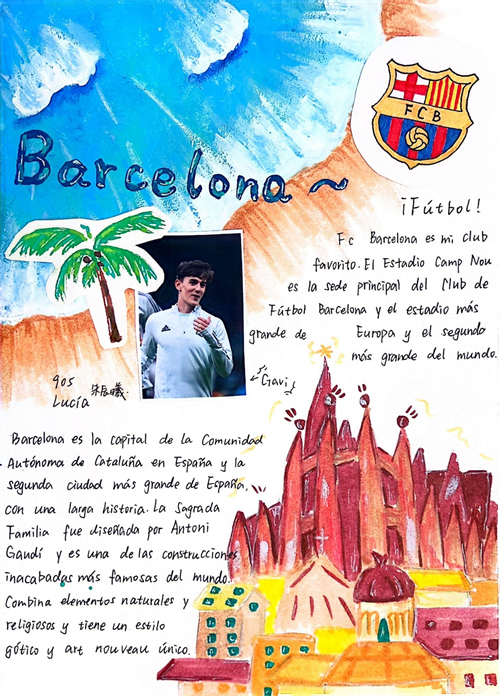 Barcelona ~
F C B
¡Fútbol!
Fc Barcelona es mi club
favorito. El Estadio Camp Nou
es la sede principal del Club de
Fútbol Barcelona y el estadio más
grande de Europa y el segundo
más grande del mundo.
Gavi
905
Lucía
Barcelona es la capital de la Comunidad
Autónoma de Cataluña en España y la
segunda ciudad más grande de España,
con una larga historia. La Sagrada
Familia fue diseñada por Antoni
Gaudí y es una de las construcciones
inacabadas más famosas del mundo.
Combina elementos naturales y
religiosos y tiene un estilo
gótico y art nouveau único.